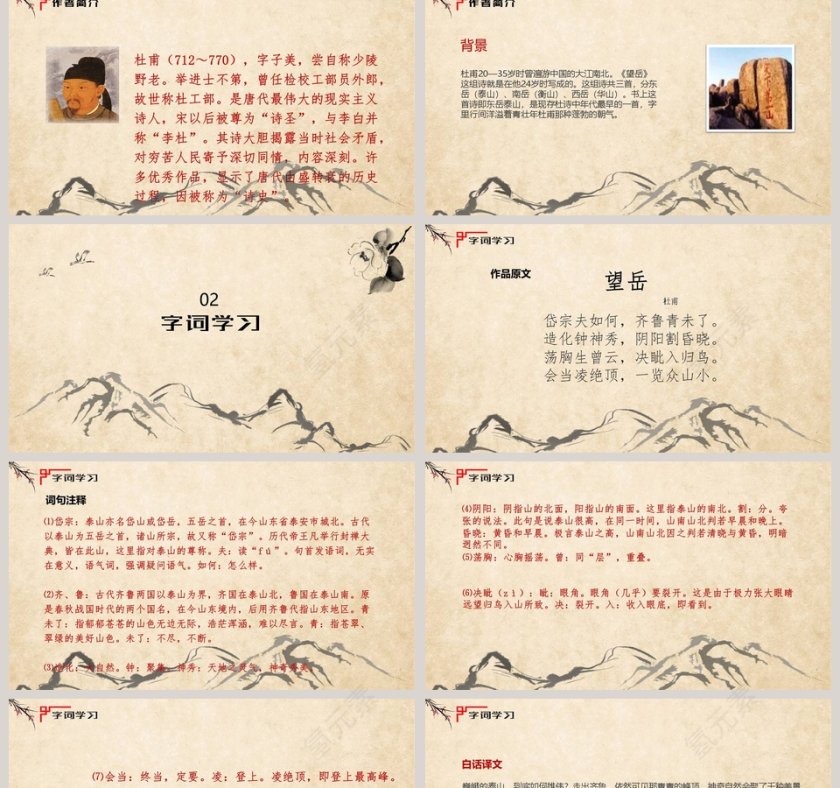 作者简介
杜甫（712～770），字子美，尝自称少陵
野老。举进士不第，曾任检校工部员外郎，
故世称杜工部。是唐代最伟大的现实主义
诗人，宋以后被尊为“诗圣”，与李白并
称“李杜”。其诗大胆揭露当时社会矛盾，
对穷苦人民寄予深切同情，内容深刻。许
多优秀作品，显示了唐代由盛转衰的历史
过程，因被称为“诗史”。
作者简介
背景
杜甫20—35岁时曾遍游中国的大江南北。《望岳》
这组诗就是在他24岁时写成的。这组诗共三首，分东
岳（泰山）、南岳（衡山）、西岳（华山）。书上这
首诗即东岳泰山，是现存杜诗中年代最早的一首，字
里行间洋溢着青壮年杜甫那种蓬勃的朝气。
02
字词学习
字词学习
作品原文
望岳
杜甫
岱宗夫如何，齐鲁青未了。
造化钟神秀，阴阳割昏晓。
荡胸生曾云，决眦入归鸟。
会当凌绝顶，一览众山小。
字词学习
词句注释
⑴岱宗：泰山亦名岱山或岱岳，五岳之首，在今山东省泰安市城北。古代
以泰山为五岳之首，诸山所宗，故又称“岱宗”。历代帝王凡举行封禅大
典，皆在此山，这里指对泰山的尊称。夫：读“fú”。句首发语词，无实
在意义，语气词，强调疑问语气。如何：怎么样。
⑵齐、鲁：古代齐鲁两国以泰山为界，齐国在泰山北，鲁国在泰山南。原
是春秋战国时代的两个国名，在今山东境内，后用齐鲁代指山东地区。青
未了：指郁郁苍苍的山色无边无际，浩茫浑涵，难以尽言。青：指苍翠、
翠绿的美好山色。未了：不尽，不断。
⑶造化：大自然。钟：聚集。神秀：天地之灵气，神奇秀美。
字词学习
⑷阴阳：阴指山的北面，阳指山的南面。这里指泰山的南北。割：分。夸
张的说法。此句是说泰山很高，在同一时间，山南山北判若早晨和晚上。
昏晓：黄昏和早晨。极言泰山之高，山南山北因之判若清晓与黄昏，明暗
迥然不同。
⑸荡胸：心胸摇荡。曾：同“层”，重叠。
⑹决眦（zì）：眦：眼角。眼角（几乎）要裂开。这是由于极力张大眼睛
远望归鸟入山所致。决：裂开。入：收入眼底，即看到。
字词学习
⑺会当：终当，定要。凌：登上。凌绝顶，即登上最高峰。
字词学习
白话译文
巍峨的泰山，到底如何雄伟？走出齐鲁，依然可见那青青的峰顶。神奇自然会聚了千种美景